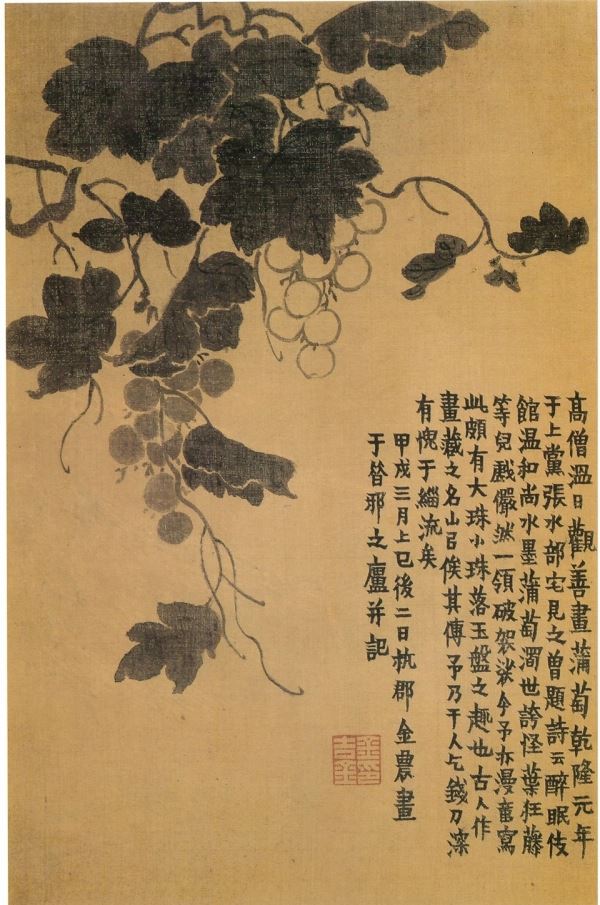 高僧溫日觀善畫蒲萄乾隆元年
于上黨張水部宅見之曾題詩云醉眠伎
館温和尚水墨蒲萄濁世誇怪葉狂藤
等兒戲儼然一領破袈裟今予亦漫寫
此頗有大珠小珠落玉盤之趣也古人作
畫藏之名山㠯俟其傳予乃干人乞錢刀深
有愧于緇流矣
甲戌三月上巳後二日杭郡金農畫
于昔邪之廬并記
金印吉金